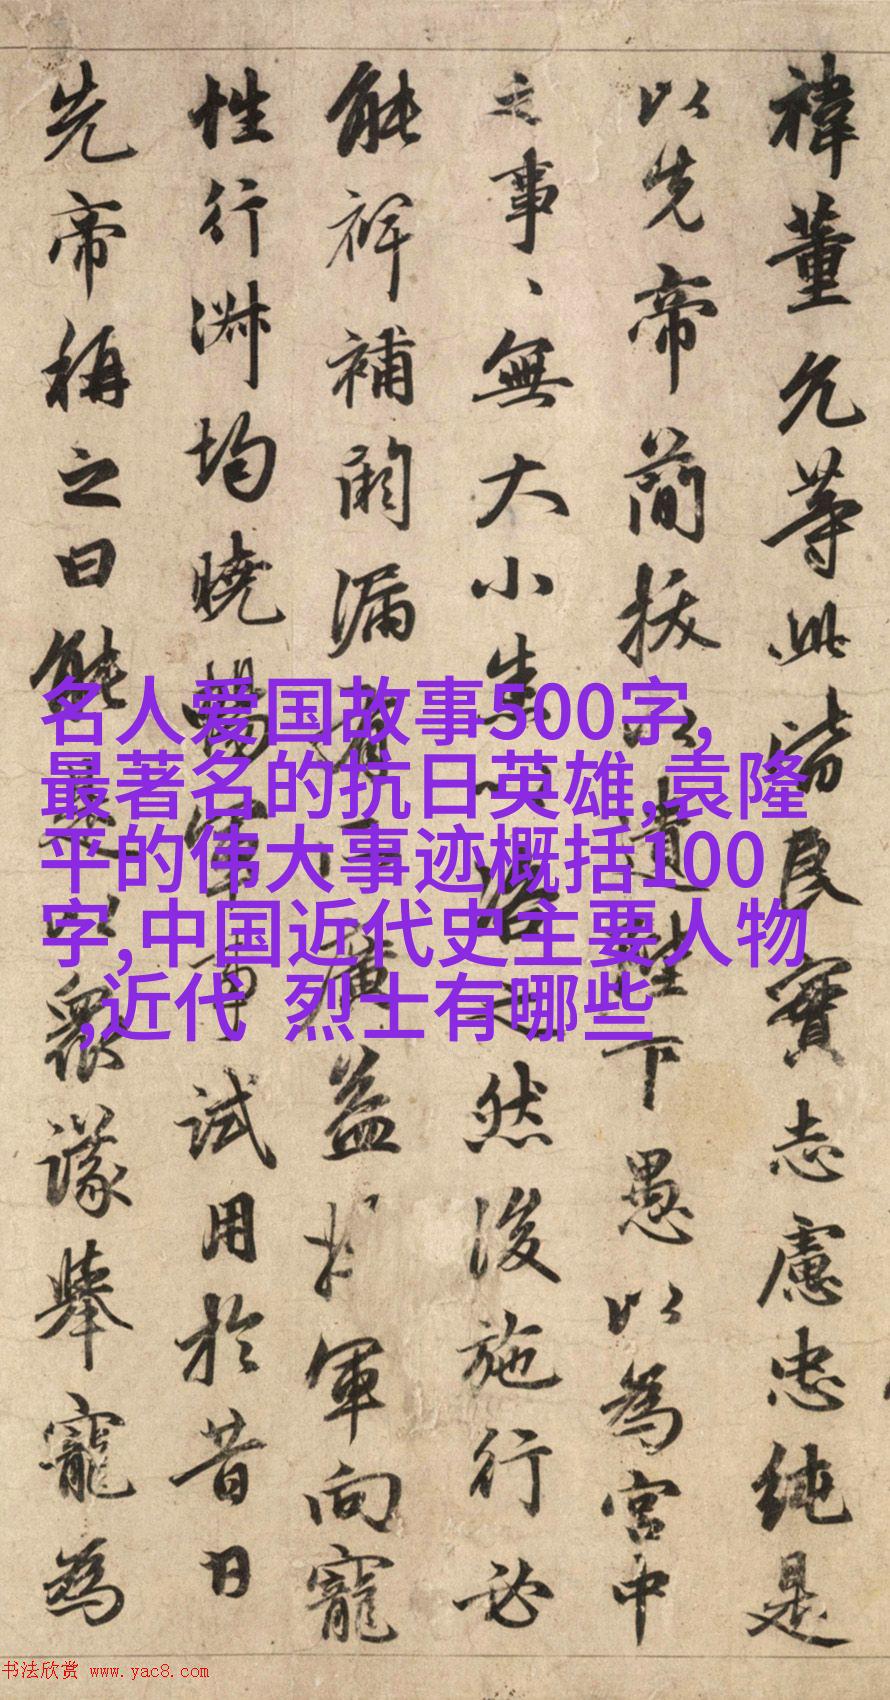 禕董允等此皆良實志慮忠純是
以先帝簡拔以遺陛下愚以為宮中
之事、無大小悉以咨之然後施行必
能裨補闕漏有所廣益將軍向寵
性行淑均曉暢軍事試用於昔日
先帝稱之曰能是以衆議舉寵為
名人爱国故事500字,
最著名的抗日英雄,袁隆
平的伟大事迹概括100
字,中国近代史主要人物
,近代 烈士有哪些
书法欣赏 www.yac8.com